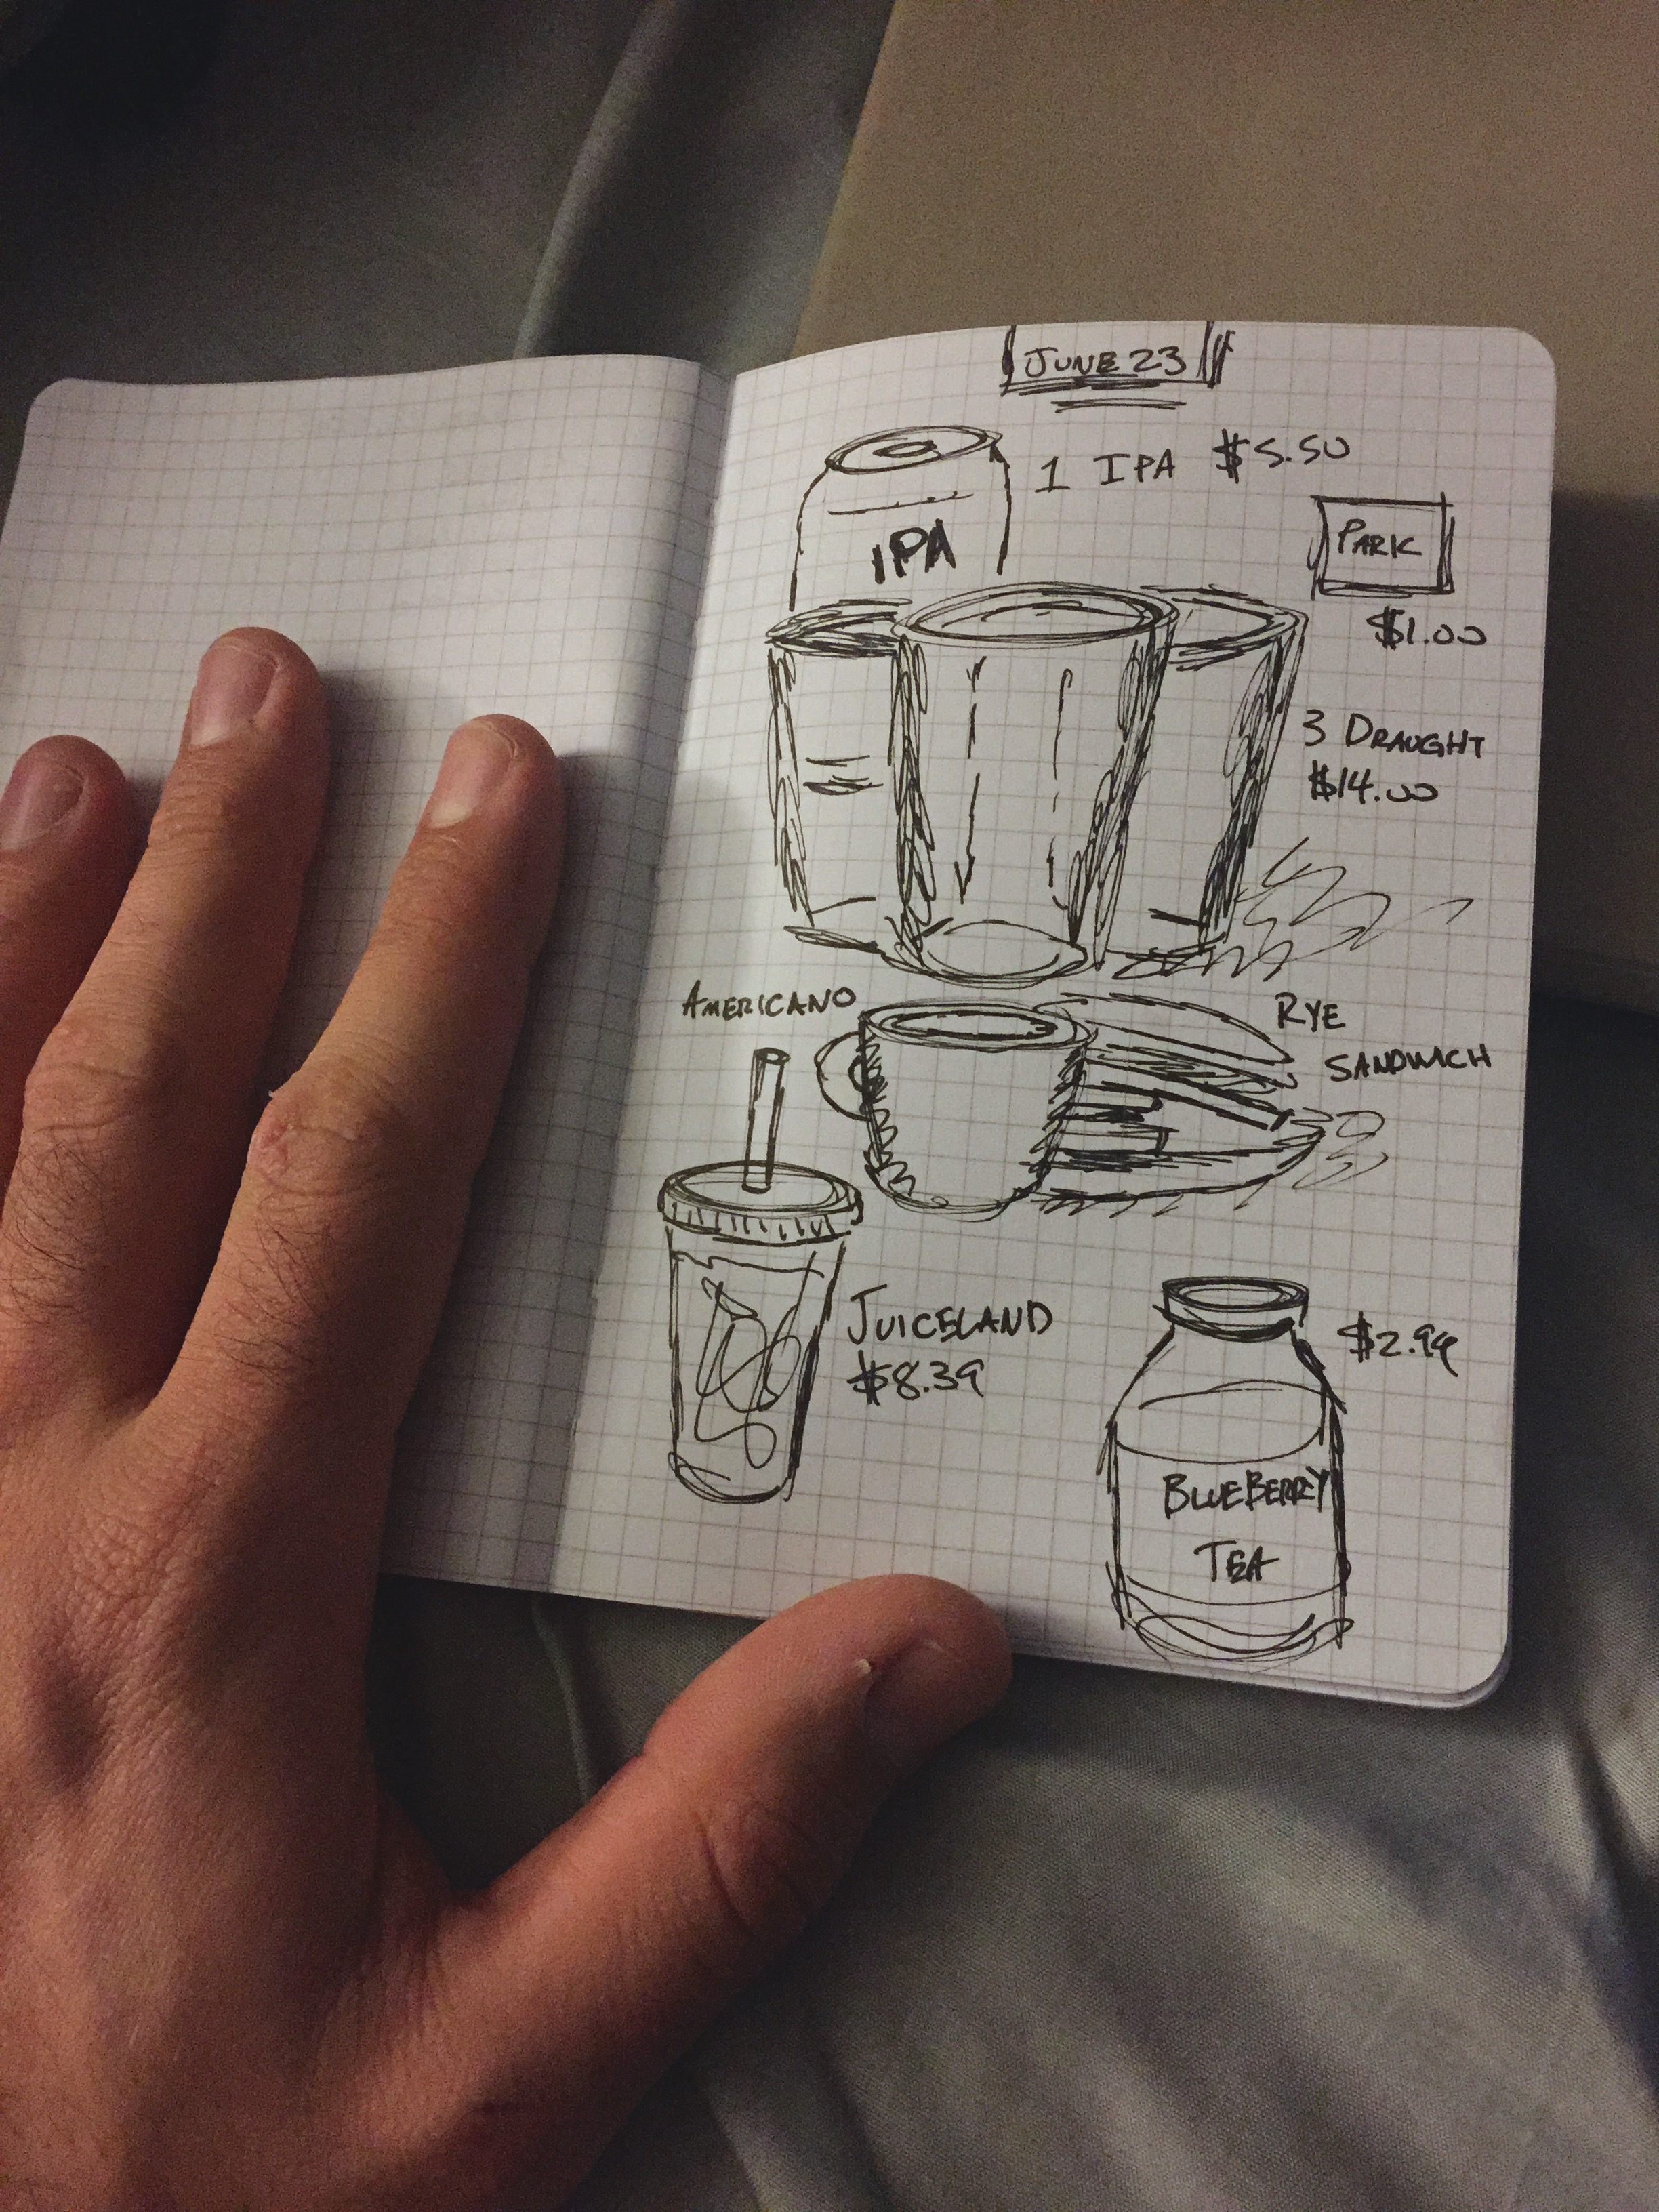 JUNE 23
1 IPA $5.50
IPA
PARK
$1.00
3 DRAUGHT
$14.00
AMERICANO
RYE
SANDWICH
JUICELAND
$8.39
$2.99
BLUEBERRY
TEA